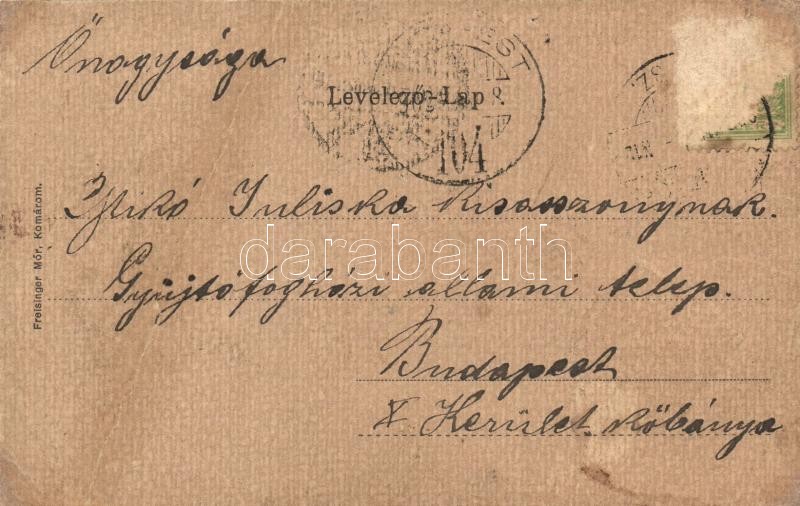 Őnagysága
Levelező-Lap
104
Mikó Juliska Kisasszonynak.
darabanth
Gyüjtőfogházi állami telep.
Budapest
X Kerület. Kőbánya
Freisinger Mór, Komárom.